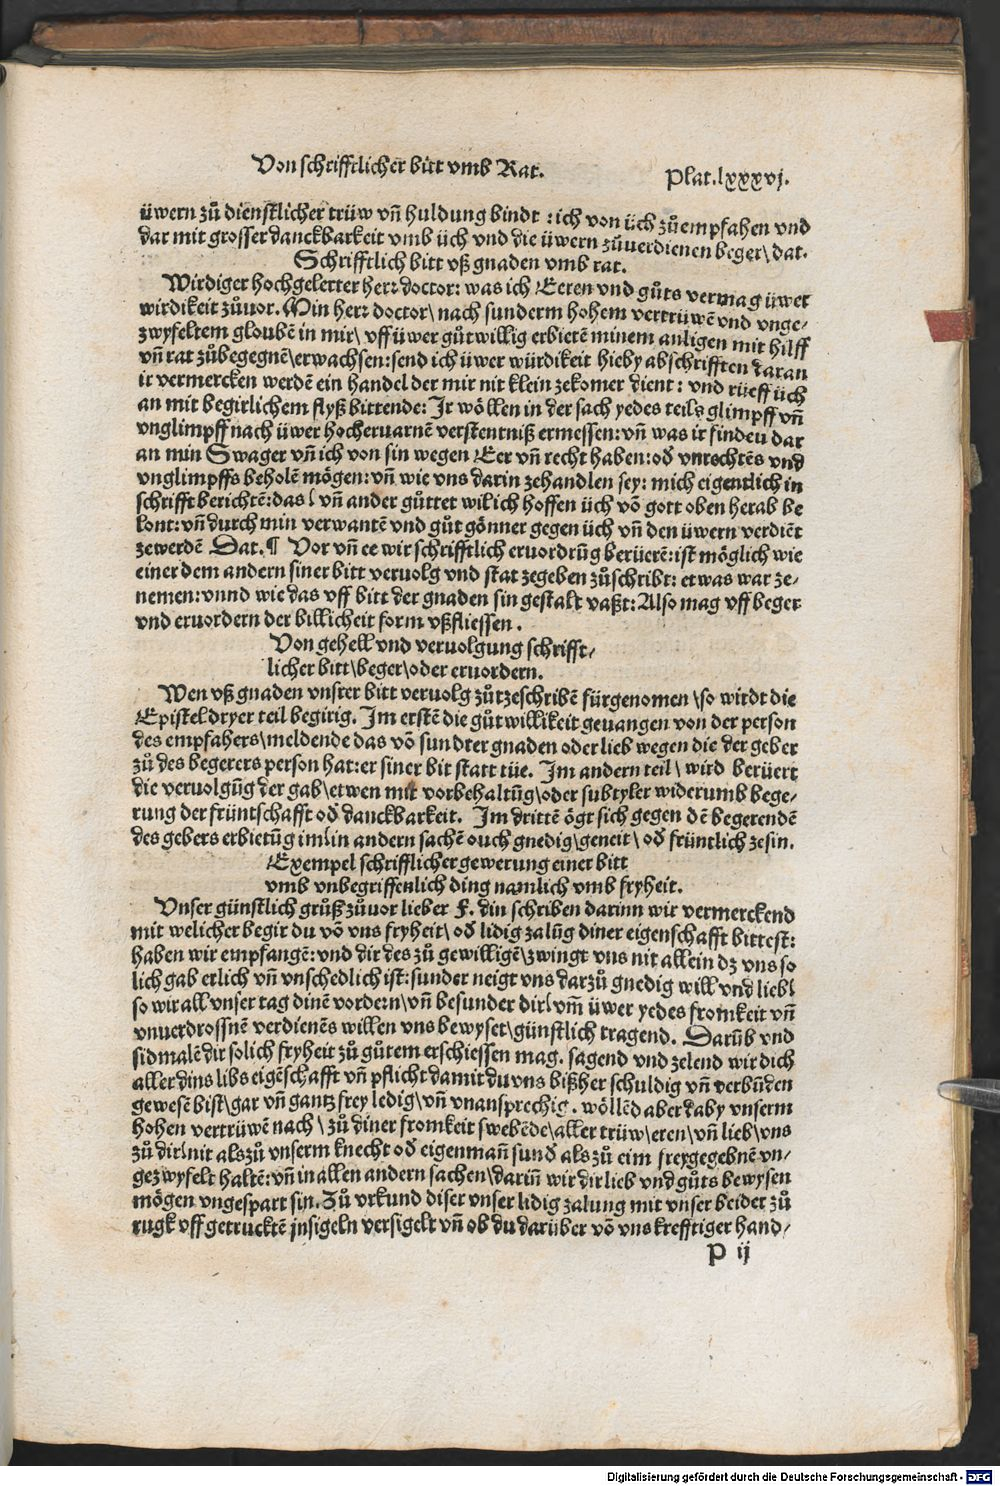 Von schrifftlicher bitt vmb Rat.
Plat.lxxxvj.
üwern zů dienstlicher trüw vñ huldung bindt : ich von üch zů empfahen vnd
dar mit grosser danckbarkeit vmb üch vnd die üwern zůuerdienen beger\ dat.
Schrifftlich bitt vß gnaden vmb rat.
Wirdiger hochgelerter herr doctor: was ich Eeren vnd gůts vermag üwer
wirdikeit zůuor. Min herr doctor\ nach sunderm hohem vertrüwē vnd vnge-
zwyfeltem gloubē in mir\ vff üwer gůtwillig erbietē minem anligen mit hilff
vñ rat zůbegegnē\ erwachsen: send ich üwer würdikeit hieby abschrifften daran
ir vermercken werdē ein handel der mir nit klein zekomer dient : vnd rüeff üch
an mit begirlichem flyß bittende: Ir wöllen in der sach yedes teils glimpff vñ
vnglimpff nach üwer hocheruarnē verstentniß ermessen: vñ was ir finden dar
an min Swager vñ ich von sin wegen Eer vñ recht haben: od̄ vnrechtēs vnd
vnglimpffs beholē mögen: vñ wie vns darin zehandlen sey: mich eigentlich in
schrifft berichtē: das\ vñ ander gůttet wil ich hoffen üch vō gott oben herab be
lont: vñ durch min verwantē vnd gůt gönner gegen üch vñ den üwern verdiēt
zewerdē Dat. ¶ Vor vñ ee wir schrifftlich eruordrūg berüerē: ist möglich wie
einer dem andern siner bitt veruolg vnd stat zegeben zůschribt: etwas war ze-
nemen: vnnd wie das vff bitt der gnaden sin gestalt vaßt: Also mag vff beger
vnd eruordern der billicheit form vßfliessen .
Von gehell vnd veruolgung schrifft-
licher bitt\ beger\ oder eruordern.
Wen vß gnaden vnsrer bitt veruolg zůtzeschribē fürgenomen \ so wirdt die
Epistel dryer teil begirig. Im erstē die gůtwillikeit geuangen von der person
des empfahers\ meldende das vō sundrer gnaden oder lieb wegen die der geber
zů des begerers person hat: er siner bit statt tüe. Im andern teil\ wird berüert
die veruolgūg der gab\ etwen mit vorbehaltūg\ oder subtyler widerumb bege-
rung der früntschafft od̄ danckbarkeit. Im drittē ögt sich gegen dē begerendē
des gebers erbietūg im\ in andern sachē ouch gnedig\ geneit\ od̄ früntlich zesin.
Exempel schrifflicher gewerung einer bitt
vmb vnbegriffenlich ding namlich vmb fryheit.
Vnser günstlich grůß zůuor lieber F. din schriben darinn wir vermerckend
mit welicher begir du vō vns fryheit\ od̄ lidig zalūg diner eigenschafft bittest:
haben wir empfangē: vnd dir des zů gewilligē\ zwingt vns nit allein dz vns so
lich gab erlich vñ vnschedlich ist: sunder neigt vns darzů gnedig will vnd lieb\
so wir all vnser tag dinē vordern\ vñ besunder dir\ vm̄ üwer yedes fromkeit vñ
vnuerdrossnē verdienēs willen vns bewyset\ günstlich tragend. Darūb vnd
sidmalē dir solich fryheit zů gůtem erschiessen mag. sagend vnd zelend wir dich
aller dins libs eigēschafft vñ pflicht damit du vns bißher schuldig vñ verbūden
gewesē bist\ gar vñ gantz frey ledig\ vñ vnansprechig . wöllēd aber daby vnserm
hohen vertrüwē nach \ zů diner fromkeit swebēde\ aller trüw\ eren\ vñ lieb\ vns
zů dir\ nit als zů vnserm knecht od̄ eigenmañ sund̄ als zů eim freygegebnē vn-
gezwyfelt haltē: vñ in allen andern sachen\ dariñ wir dir lieb vnd gůts bewysen
mögen vngespart sin. Zů vrkund diser vnser lidig zalung mit vnser beider zů
rugk vff getrucktē jnsigeln versigelt vñ ob du darüber vō vns krefftiger hand-
P ij
Digitalisierung gefördert durch die Deutsche Forschungsgemeinschaft - DFG